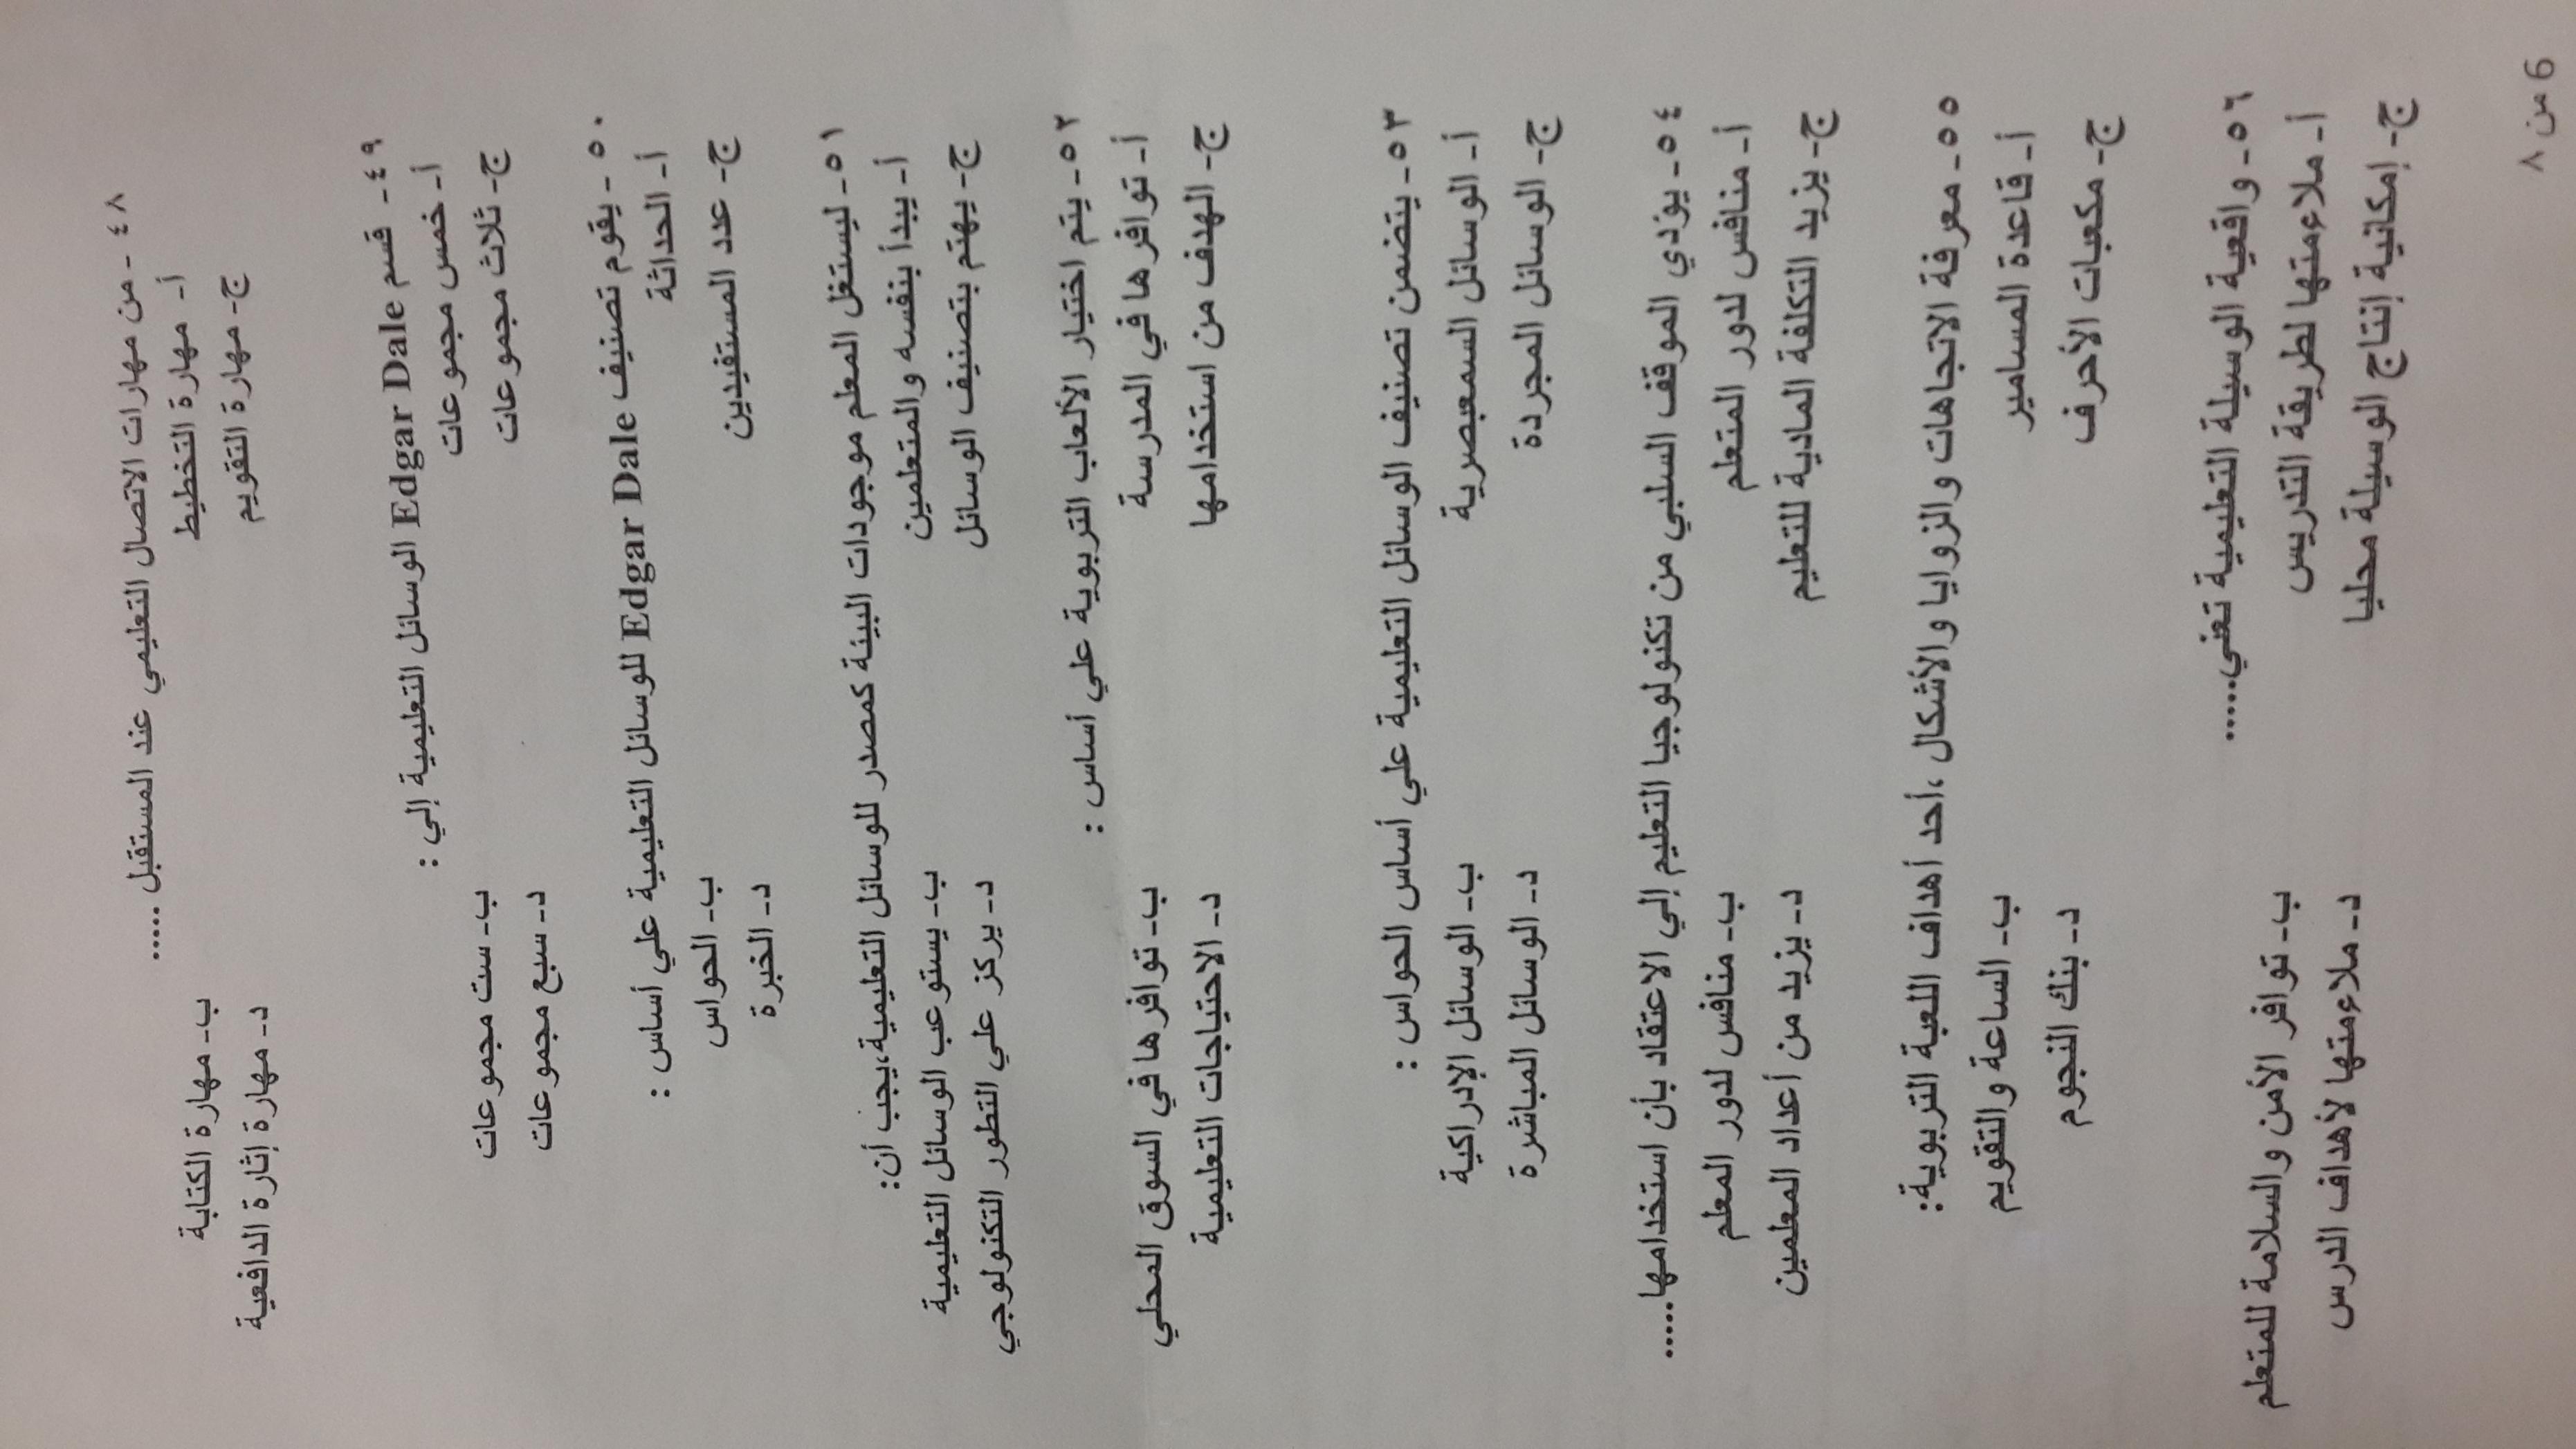 ٤٨ - من مهارات الاتصال التعليمي عند المستقبل .....
أ- مهارة التخطيط ب- مهارة الكتابة
ج- مهارة التقويم د- مهارة إثارة الدافعية
٤٩ - قسم Edgar Dale الوسائل التعليمية إلي :
أ- خمس مجموعات ب- ست مجموعات
ج- ثلاث مجموعات د- سبع مجموعات
٥٠ - يقوم تصنيف Edgar Dale للوسائل التعليمية علي أساس :
أ- الحداثة ب- الحواس
ج- عدد المستفيدين د- الخبرة
٥١ - ليستغل المعلم موجودات البيئة كمصدر للوسائل التعليمية،يجب أن:
أ- يبدأ بنفسه والمتعلمين ب- يستوعب الوسائل التعليمية
ج- يهتم بتصنيف الوسائل د- يركز علي التطور التكنولوجي
٥٢ - يتم اختيار الألعاب التربوية علي أساس :
أ- توافرها في المدرسة ب- توافرها في السوق المحلي
ج- الهدف من استخدامها د- الاحتياجات التعليمية
٥٣ - يتضمن تصنيف الوسائل التعليمية علي أساس الحواس :
أ- الوسائل السمعبصرية ب- الوسائل الإدراكية
ج- الوسائل المجردة د- الوسائل المباشرة
٥٤ - يؤدي الموقف السلبي من تكنولوجيا التعليم إلي الاعتقاد بأن استخدامها......
أ- منافس لدور المتعلم ب- منافس لدور المعلم
ج- يزيد التكلفة المادية للتعليم د- يزيد من أعداد المعلمين
٥٥ - معرفة الاتجاهات والزوايا والأشكال ،أحد أهداف اللعبة التربوية:
أ- قاعدة المسامير ب- الساعة والتقويم
ج- مكعبات الأحرف د- بنك النجوم
٥٦ - واقعية الوسيلة التعليمية تعني......
أ- ملاءمتها لطريقة التدريس ب- توافر الأمن والسلامة للمتعلم
ج- إمكانية إنتاج الوسيلة محليا د- ملاءمتها لأهداف الدرس
6 من ٨